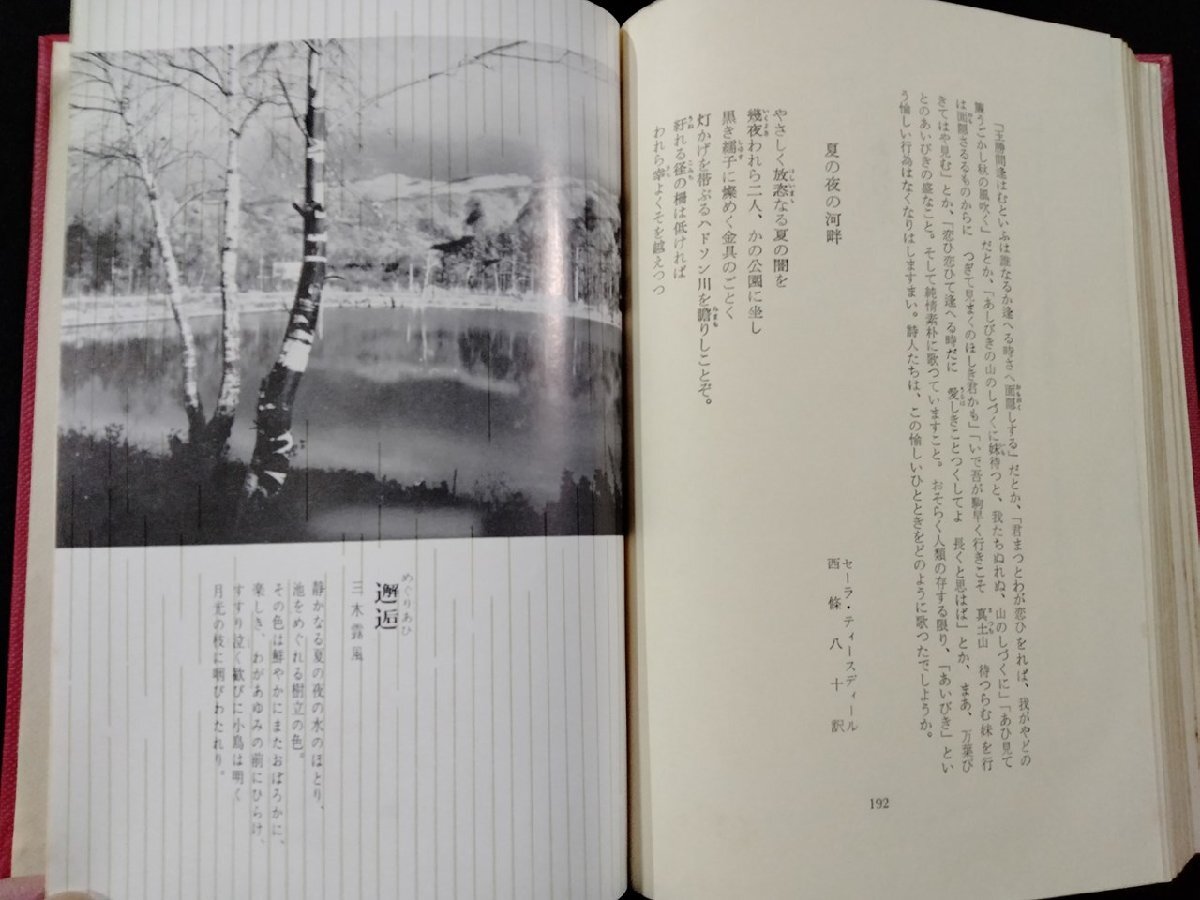 「玉勝間逢はむといふは誰なるか逢へる時さへ面隠しする」だとか、「君まつとわが恋ひをれば、我がやどの
簾うごかし秋の風吹く」だとか、「あしびきの山のしづくに妹待つと、我たちぬれぬ、山のしづくに」「あひ見て
は面隠さるるものからに つぎて見まくのほしき君かも」「いで吾が駒早く行きこそ 真土山 待つらむ妹を行
きてはや見む」とか、「恋ひ恋ひて逢へる時だに 愛しきことつくしてよ 長くと思はば」とか、まあ、万葉び
とのあいびきの盛なこと。そして純情素朴に歌つていますこと。おそらく人類の存する限り、「あいびき」とい
う愉しい行為はなくなりはしますまい。詩人たちは、この愉しいひとときをどのように歌つたでしようか。
夏の夜の河畔
セーラ・ティースディール
西條八十訳
やさしく放恣なる夏の闇を
幾夜われら二人、かの公園に坐し
黒き繻子に燦めく金具のごとく
灯かげを帯ぶるハドソン川を瞻りしことぞ。
紆れる径の柵は低ければ
われら幸よくそを越えつつ
192
めぐりあひ
邂逅
三木露風
静かなる夏の夜の水のほとり、
池をめぐれる樹立の色。
その色は鮮やかにまたおぼろかに、
楽しき、わがあゆみの前にひらけ、
すすり泣く歓びに小鳥は明く
月光の枝に咽びわたれり。